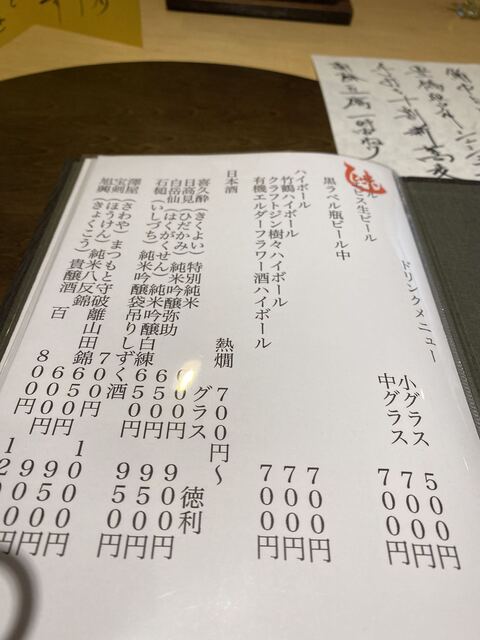 ドリンクメニュー
ビス生ビール
小グラス 500円
中グラス 700円
黒ラベル瓶ビール中 700円
ハイボール
竹鶴ハイボール 700円
クラフトジン樹々ハイボール 700円
有機エルダーフラワー酒ハイボール 700円
日本酒
熱燗 700円〜
グラス 徳利
喜久酔（きくよい）特別純米 600円 900円
日高見（ひだかみ）純米吟醸弥助 650円 950円
白岳仙（はくがくせん）純米吟醸白練 650円 950円
石槌（いしづち）純米吟醸袋吊りしずく酒 700円 1000円
澤屋（さわや）まつもと守破離山田錦 650円 950円
宝剣（ほうけん）純米八反錦 600円 900円
旭興（きょくこう）貴醸酒 百 800円 1200円